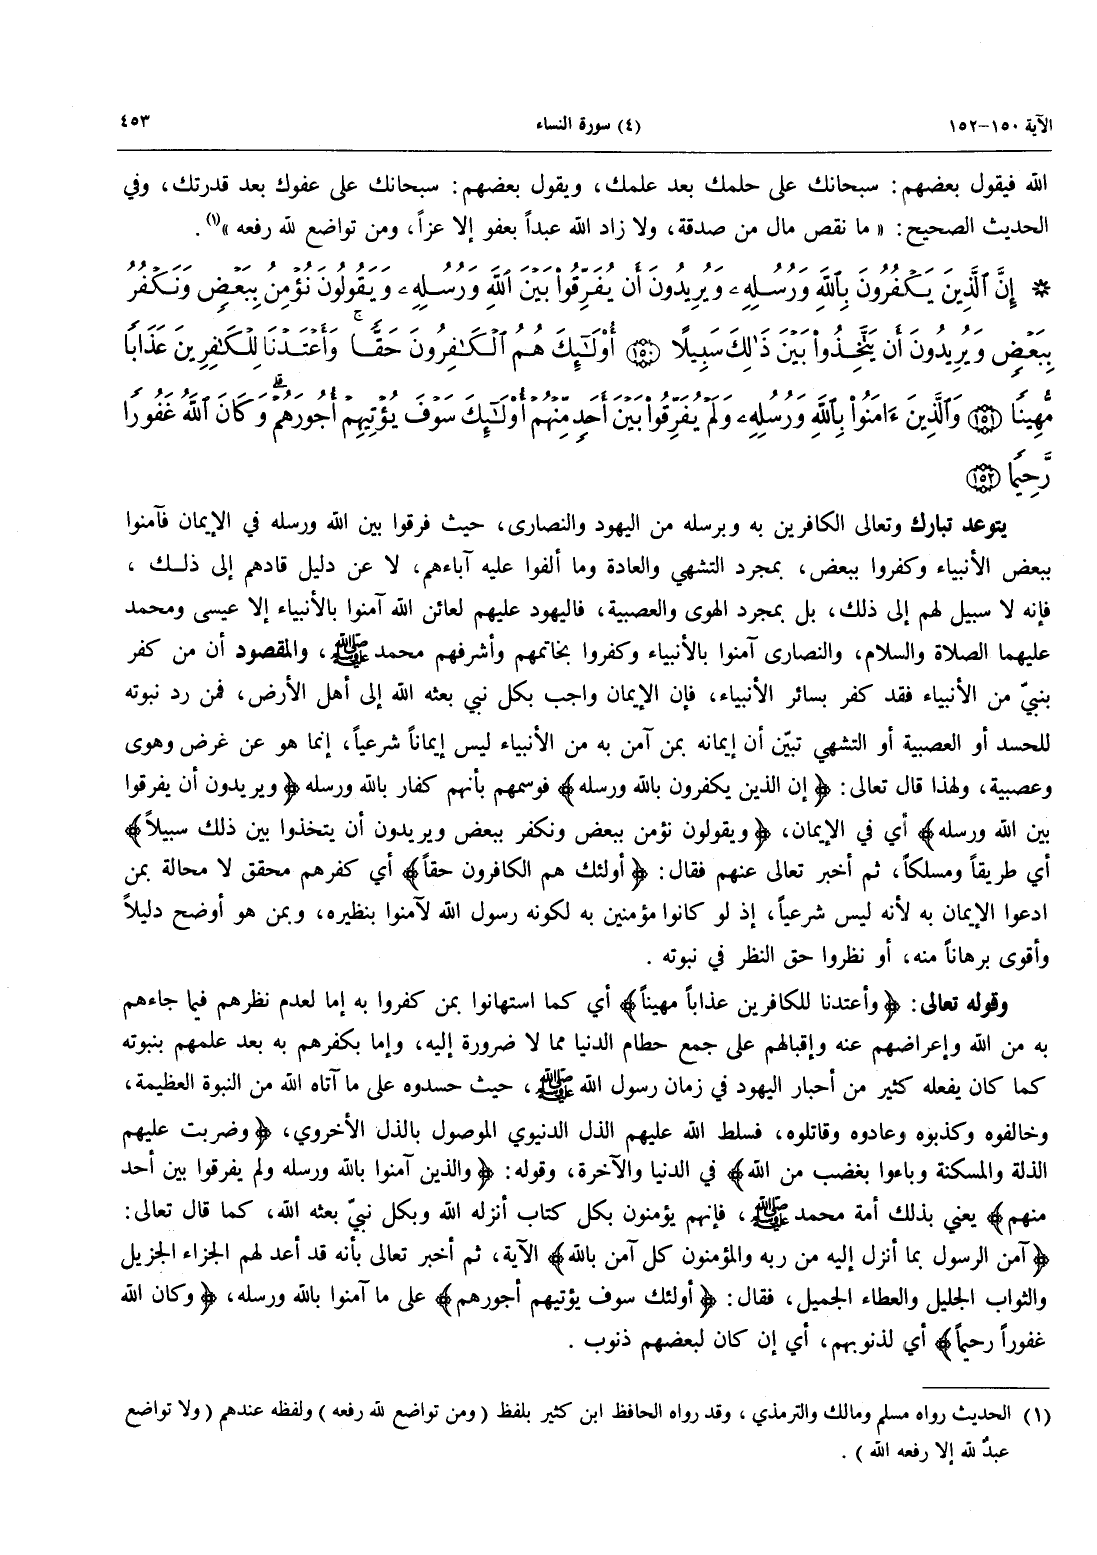 الآية ١٥٠-١٥٢ (٤) سورة النساء ٤٥٣
الله فيقول بعضهم: سبحانك على حلمك بعد علمك، ويقول بعضهم: سبحانك على عفوك بعد قدرتك، وفي
الحديث الصحيح: « ما نقص مال من صدقة، ولا زاد الله عبداً بعفو إلا عزاً، ومن تواضع لله رفعه »(١) .
* إِنَّ ٱلَّذِينَ يَكْفُرُونَ بِٱللَّهِ وَرُسُلِهِۦ وَيُرِيدُونَ أَن يُفَرِّقُوا۟ بَيْنَ ٱللَّهِ وَرُسُلِهِۦ وَيَقُولُونَ نُؤْمِنُ بِبَعْضٍ وَنَكْفُرُ
بِبَعْضٍ وَيُرِيدُونَ أَن يَتَّخِذُوا۟ بَيْنَ ذَٰلِكَ سَبِيلًا ١٥٠ أُو۟لَـٰٓئِكَ هُمُ ٱلْكَـٰفِرُونَ حَقًّا ۚ وَأَعْتَدْنَا لِلْكَـٰفِرِينَ عَذَابًا
مُّهِينًا ١٥١ وَٱلَّذِينَ ءَامَنُوا۟ بِٱللَّهِ وَرُسُلِهِۦ وَلَمْ يُفَرِّقُوا۟ بَيْنَ أَحَدٍ مِّنْهُمْ أُو۟لَـٰٓئِكَ سَوْفَ يُؤْتِيهِمْ أُجُورَهُمْ ۗ وَكَانَ ٱللَّهُ غَفُورًا
رَّحِيمًا ١٥٢
يتوعد تبارك وتعالى الكافرين به وبرسله من اليهود والنصارى، حيث فرقوا بين الله ورسله في الإيمان فآمنوا
ببعض الأنبياء وكفروا ببعض، بمجرد التشهي والعادة وما ألفوا عليه آباءهم، لا عن دليل قادهم إلى ذلـك ،
فإنه لا سبيل لهم إلى ذلك، بل بمجرد الهوى والعصبية، فاليهود عليهم لعائن الله آمنوا بالأنبياء إلا عيسى ومحمد
عليهما الصلاة والسلام، والنصارى آمنوا بالأنبياء وكفروا بخاتمهم وأشرفهم محمد ﷺ، والمقصود أن من كفر
بنبيّ من الأنبياء فقد كفر بسائر الأنبياء، فإن الإيمان واجب بكل نبي بعثه الله إلى أهل الأرض، فمن رد نبوته
للحسد أو العصبية أو التشهي تبيّن أن إيمانه بمن آمن به من الأنبياء ليس إيماناً شرعياً، إنما هو عن غرض وهوى
وعصبية، ولهذا قال تعالى: ﴿ إن الذين يكفرون بالله ورسله﴾ فوسمهم بأنهم كفار بالله ورسله ﴿ ويريدون أن يفرقوا
بين الله ورسله﴾ أي في الإيمان، ﴿ ويقولون نؤمن ببعض ونكفر ببعض ويريدون أن يتخذوا بين ذلك سبيلاً﴾
أي طريقاً ومسلكاً، ثم أخبر تعالى عنهم فقال: ﴿ أولئك هم الكافرون حقاً﴾ أي كفرهم محقق لا محالة بمن
ادعوا الإيمان به لأنه ليس شرعياً، إذ لو كانوا مؤمنين به لكونه رسول الله لآمنوا بنظيره، وبمن هو أوضح دليلاً
وأقوى برهاناً منه، أو نظروا حق النظر في نبوته .
وقوله تعالى: ﴿ وأعتدنا للكافرين عذاباً مهيناً﴾ أي كما استهانوا بمن كفروا به إما لعدم نظرهم فيما جاءهم
به من الله وإعراضهم عنه وإقبالهم على جمع حطام الدنيا مما لا ضرورة إليه، وإما بكفرهم به بعد علمهم بنبوته
كما كان يفعله كثير من أحبار اليهود في زمان رسول الله ﷺ، حيث حسدوه على ما آتاه الله من النبوة العظيمة،
وخالفوه وكذبوه وعادوه وقاتلوه، فسلط الله عليهم الذل الدنيوي الموصول بالذل الأخروي، ﴿ وضربت عليهم
الذلة والمسكنة وباءوا بغضب من الله﴾ في الدنيا والآخرة، وقوله: ﴿ والذين آمنوا بالله ورسله ولم يفرقوا بين أحد
منهم﴾ يعني بذلك أمة محمد ﷺ، فإنهم يؤمنون بكل كتاب أنزله الله وبكل نبيّ بعثه الله، كما قال تعالى:
﴿ آمن الرسول بما أنزل إليه من ربه والمؤمنون كل آمن بالله﴾ الآية، ثم أخبر تعالى بأنه قد أعد لهم الجزاء الجزيل
والثواب الجليل والعطاء الجميل، فقال: ﴿ أولئك سوف يؤتيهم أجورهم﴾ على ما آمنوا بالله ورسله، ﴿ وكان الله
غفوراً رحيماً﴾ أي لذنوبهم، أي إن كان لبعضهم ذنوب .
(١) الحديث رواه مسلم ومالك والترمذي ، وقد رواه الحافظ ابن كثير بلفظ (ومن تواضع لله رفعه) ولفظه عندهم (ولا تواضع
عبدٌ لله إلا رفعه الله) .